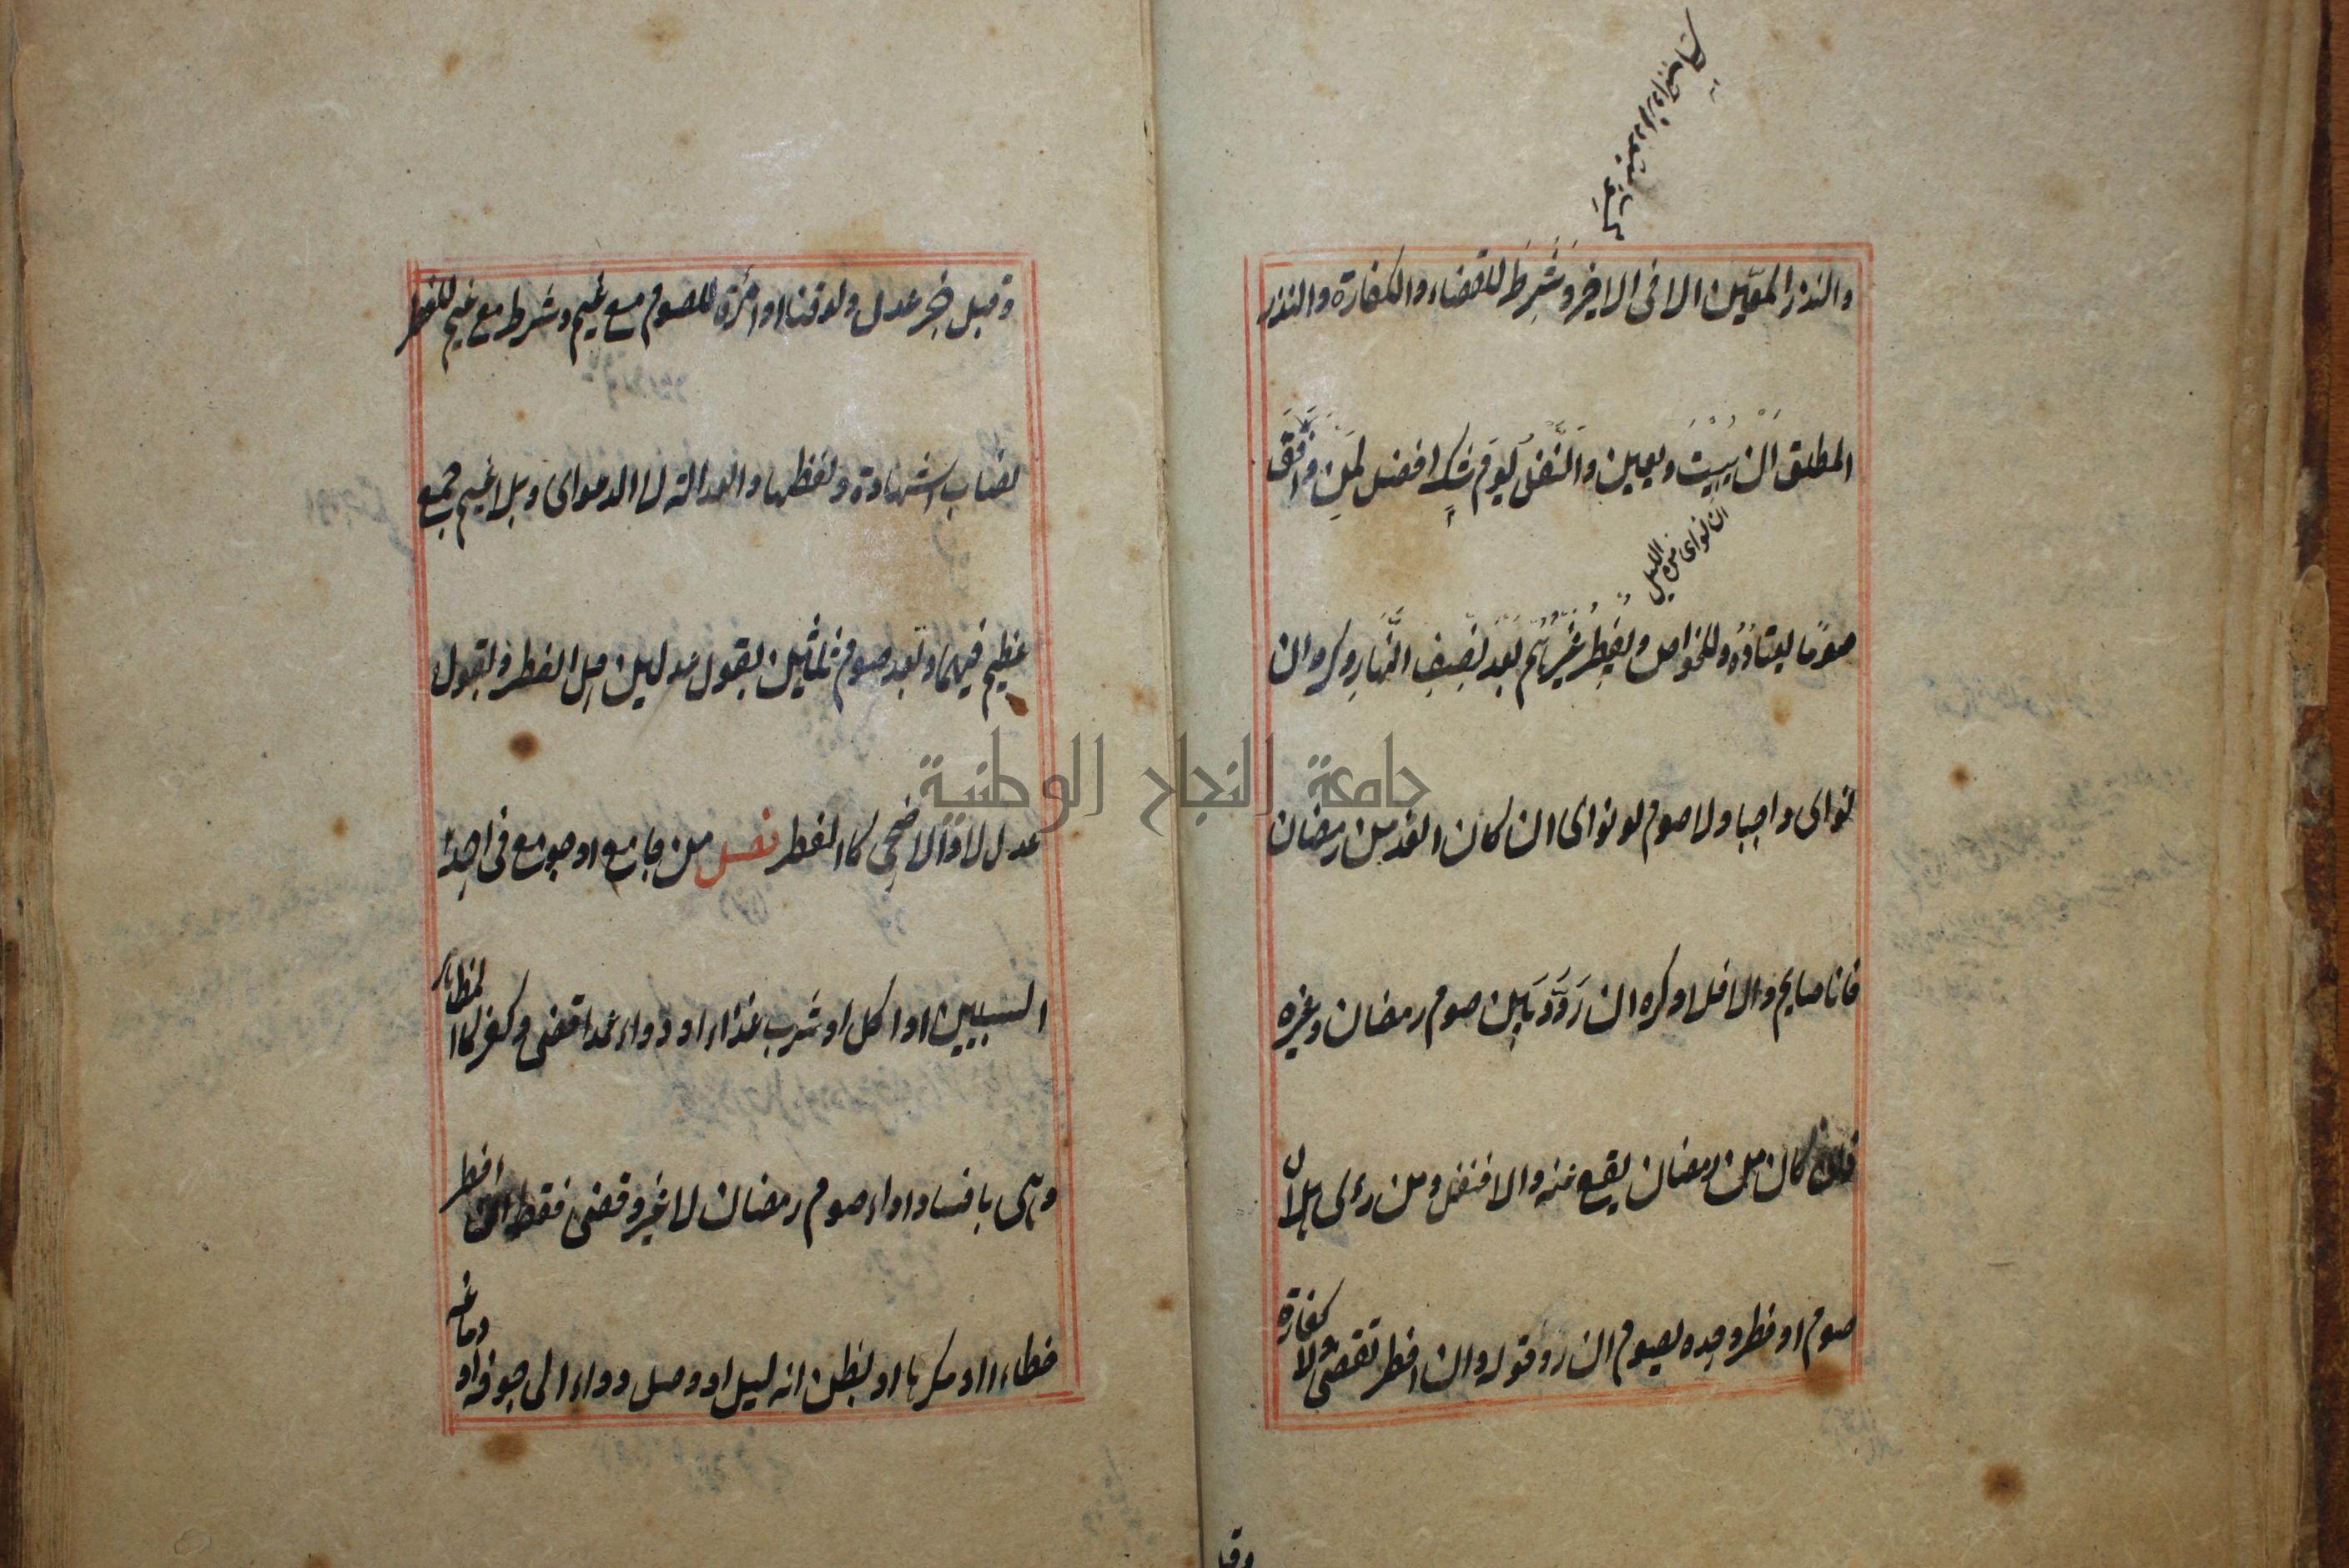 والنذر المعين الا في الاخير وشرط للقضاء والكفارة والنذر
المطلق ان يبيت ويعين والنفل يوم شك افضل لمن وافق
ان نواى من الليل
صومًا يعتاده وللخواص ويفطر غيرهم بعد نصف النهار وكره ان
نواى واجبا ولا صوم لو نواى ان كان الغد من رمضان
فانا صايم والا فلا وكره ان ردد بين صوم رمضان وغيره
فان كان من رمضان يقع عنه والا فنفل ومن رءى هلال
صوم او فطر وحده يصوم ان رد قوله وان افطر تقضى ولا كفارة
وقبل
وقبل خبر عدل ولو قنا او امرة للصوم مع غيم وشرط مع غيم للفطر
نصاب الشهادة ولفظها والعدالة لا الدعواى وبلا غيم جمع
عظيم فيهما وبعد صوم ثلثين بقول عدلين حل الفطر وبقول
عدل لا والاضحى كا الفطر فصل من جامع او جومع في احد
السبيلين او اكل او شرب غذاء او دواء عمدا قضى وكفر كا المظاهر
وهى بافساد اداء صوم رمضان لا غير وقضى فقط ان افطر
خطاء او مكرها او بظن انه ليل او وصل دواء الى جوفه او دماغه
جامعة النجاح الوطنية